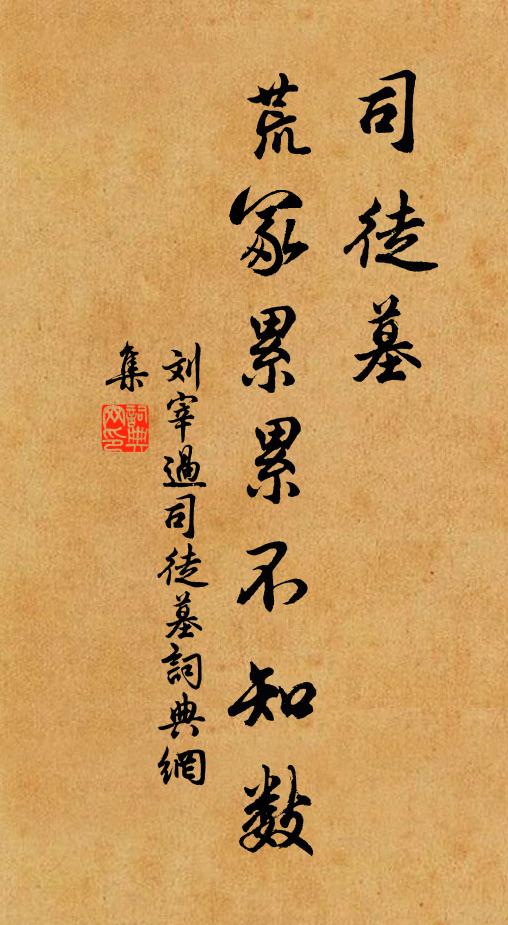 司徒墓
荒冢累累不知数
刘宰過司徒墓詞典網
集
詞典網印